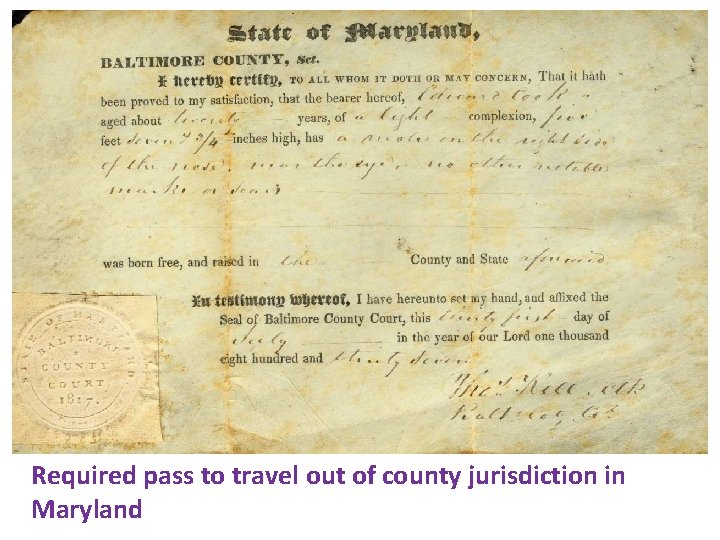 State of Maryland,
BALTIMORE COUNTY, Sct.
I hereby certify, TO ALL WHOM IT DOTH OR MAY CONCERN, That it hath
been proved to my satisfaction, that the bearer hereof, Edward Cook
aged about twenty years, of a light complexion, five
feet seven & 3/4 inches high, has a mole on the right side
of the nose, near the eye, no other notable
marks or scars
was born free, and raised in the County and State aforesaid
In testimony whereof, I have hereunto set my hand, and affixed the
Seal of Baltimore County Court, this twenty first day of
July in the year of our Lord one thousand
eight hundred and thirty seven
STATE OF MARYLAND
BALTIMORE
COUNTY
COURT
1817.
Thos. Kell, Clk
Balt Co Ct
Required pass to travel out of county jurisdiction in
Maryland